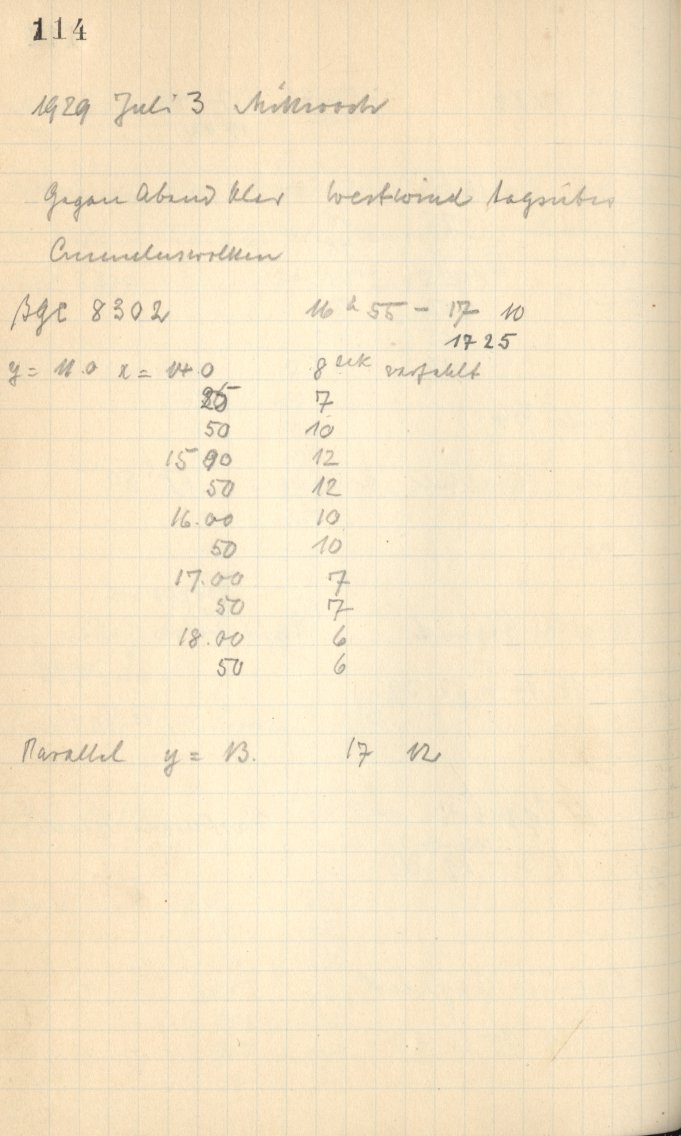 114
1929 Juli 3 Mittwoch
Gegen Abend klar Westwind tagsüber
Cumuluswolken
BGC 8302 16 h 55 - 17 10
17 25
y = 11.0 x = 14.0 8 sek verfehlt
25 7
50 10
15 00 12
50 12
16.00 10
50 10
17.00 7
50 7
18.00 6
50 6
Parallel y = 13. 17 12